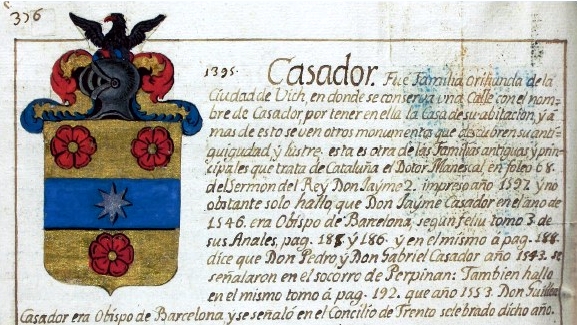 376
1395. Casador. Fue Familia oriihunda de la
Ciudad de Vich, en donde se conserva una Calle con el nom=
bre de Casador, por tener en ella la Casa de su abitacion, y á
mas de esto se ven otros monumentos que descubren su anti=
quigudad y lustre, esta es otra de las Familias antiguas y prin=
cipales que trata de Cataluña el Dotor Manescal, en foleo 68.
del Sermon del Rey Don Jayme 2. impreso año 1597. y no
obtante solo hallo, que Don Jayme Casador en el año de
1546. era Obispo de Barcelona, segun feliu tomo 3. de
sus Anales, pag. 185 y 186. y en el mismo á pag. 188.
dice que Don Pedro y Don Gabriel Casador año 1543. se
señalaron en el socorro de Perpiñan: Tambien hallo
en el mismo tomo á pag. 192. que año 1553. Don
Casador era Obispo de Barcelona, y se señaló en el Concilio de Trento selebrado dicho año.